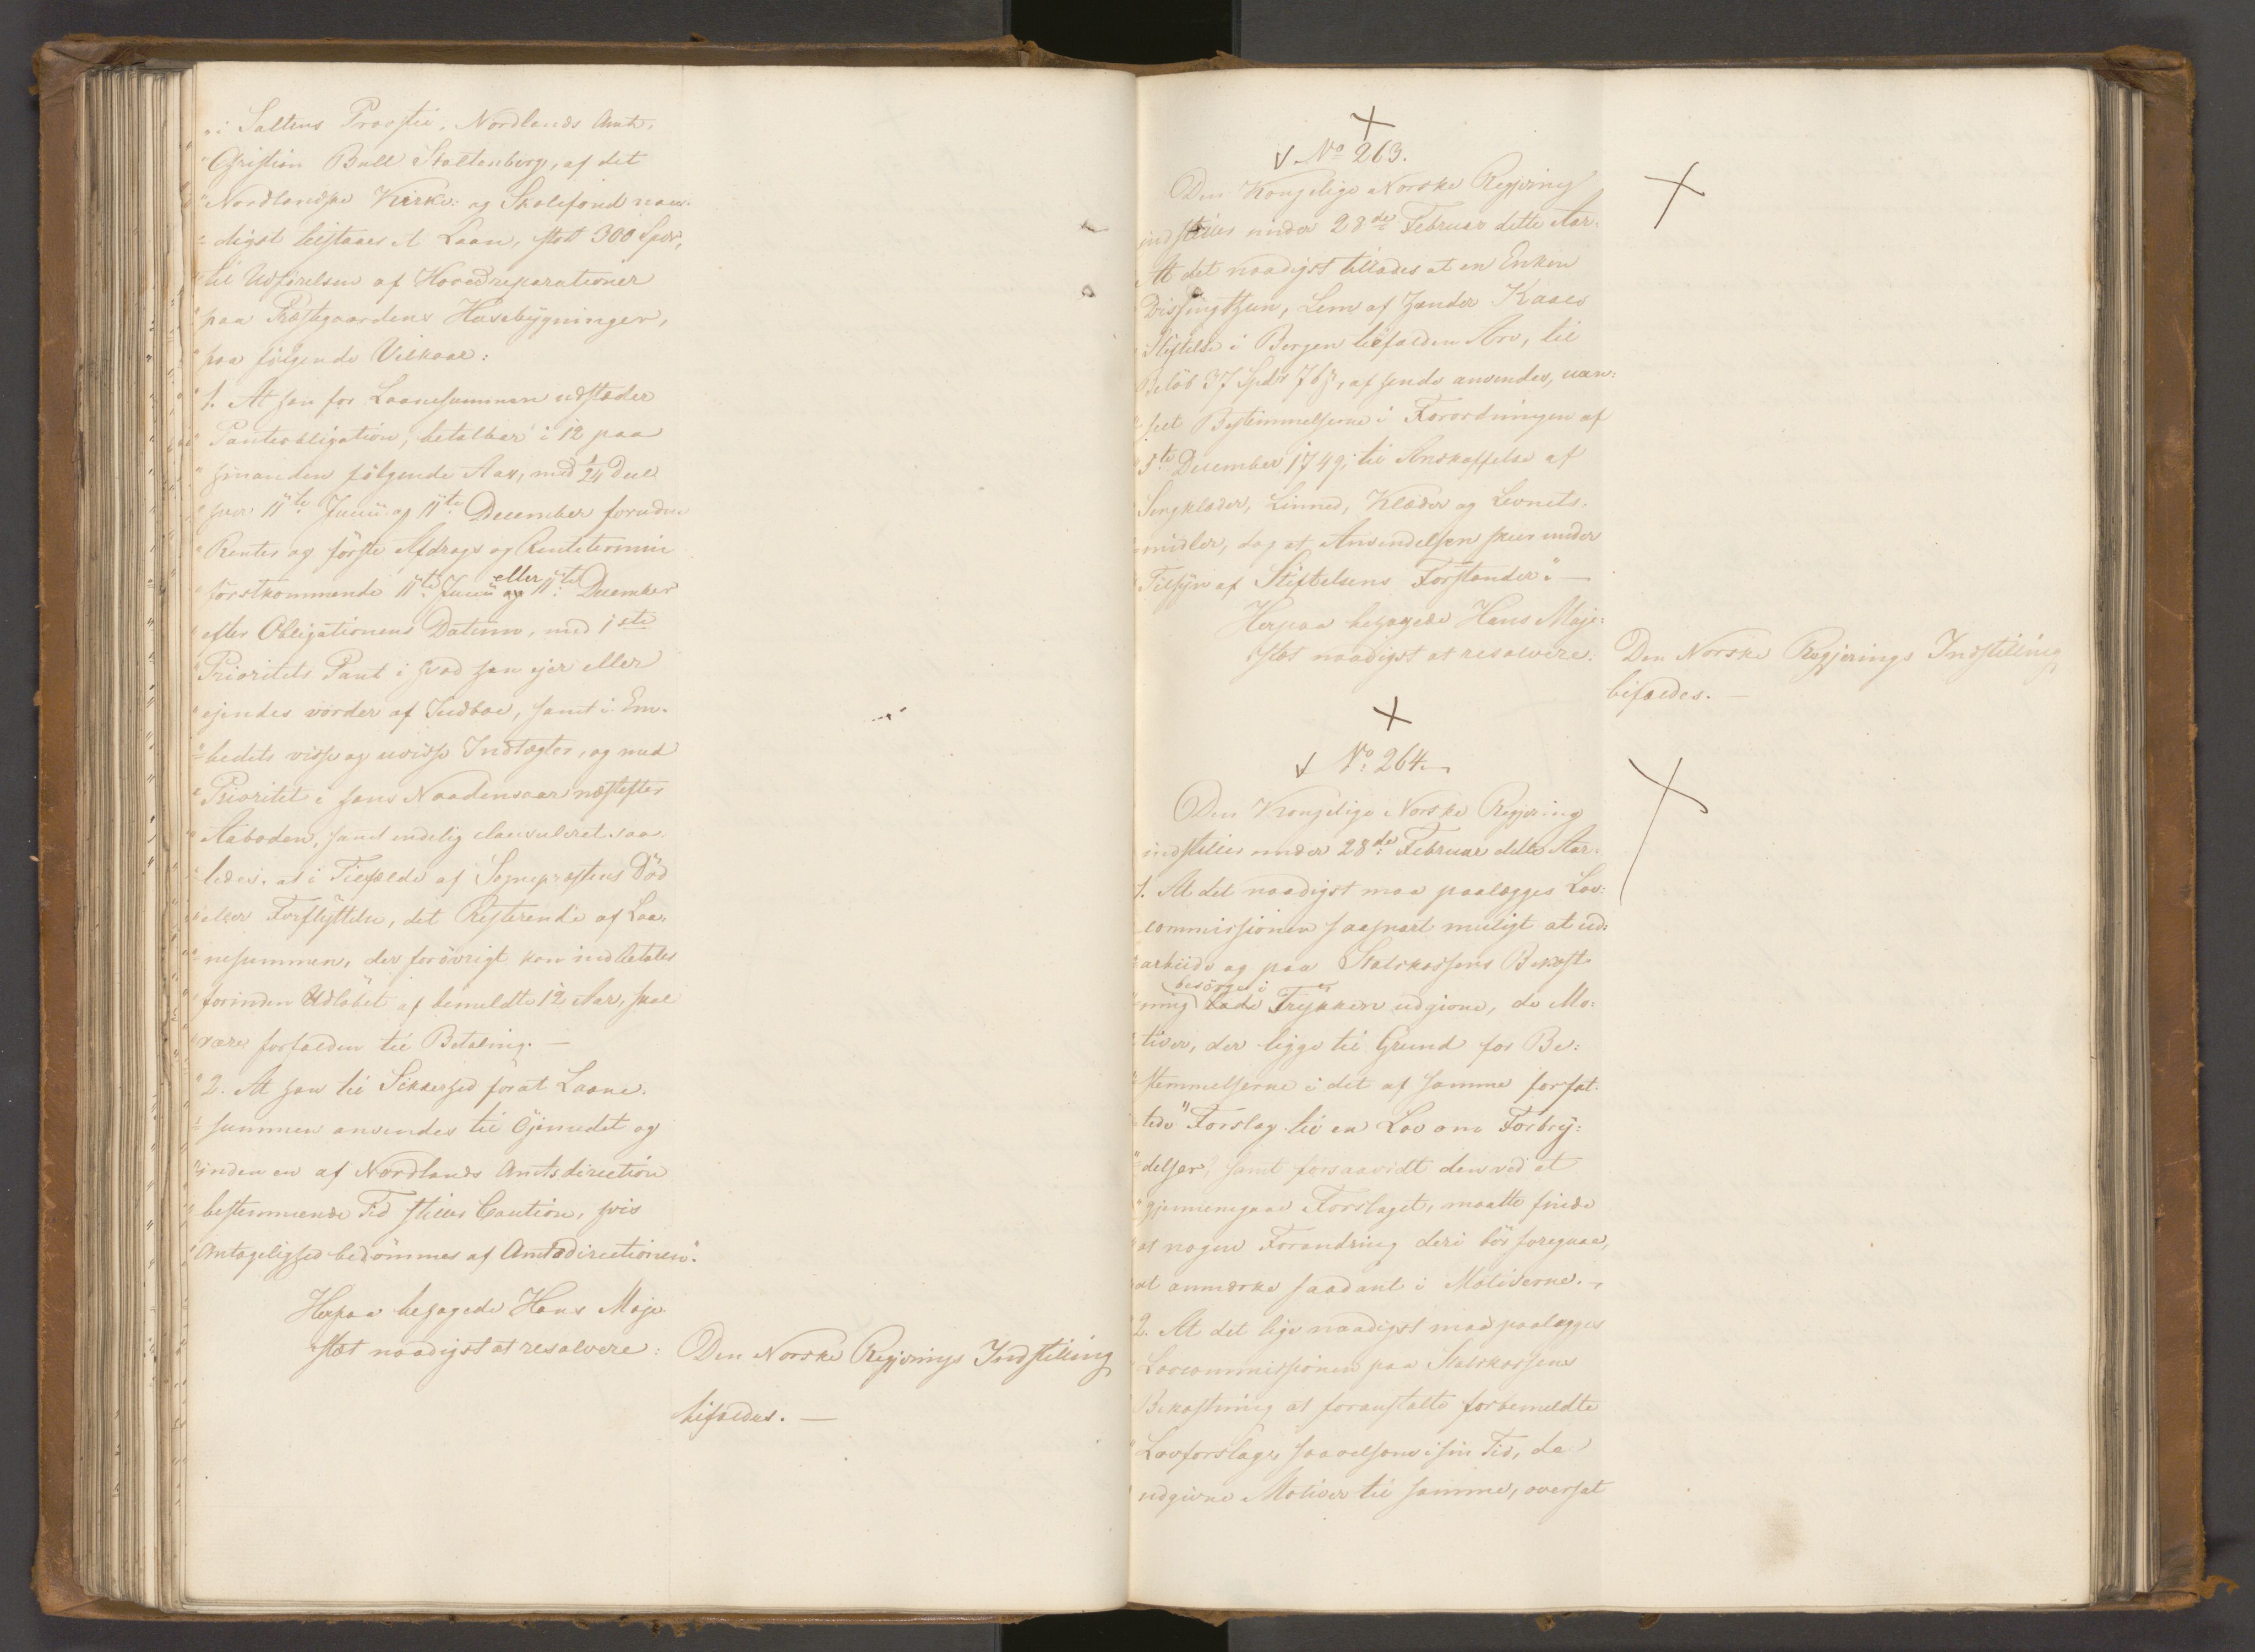 "i Saltens Provstie, Nordlands Amt,
"Christian Bull Stoltenberg, af det
"Nordlandske Kirke- og Skolefond naa-
"digst tilstaaes et Laan, stort 300 Spdr,
"til Udførelsen af Hovedreparationer
"paa Præstegaardens Huusebygninger,
"paa følgende Vilkaar:
"1. At han for Laanesummen udstæder
"Panteobligation, betalbar i 12 paa
"hinanden følgende Aar, med 1/24 Deel
"hver 11te Junii og 11te December foruden
"Renter og første Afdrags og Rentetermin
"førstkommende 11te Junii eller 11te December
"efter Obligationens Datum, med 1ste
"Prioritets Pant i hvad han ejer eller
"ejendes vorder af Indboe, samt i Em-
"bedets visse og uvisse Indtægter, og med
"Prioritet i hans Naadensaar næstefter
"Aaboden, samt endelig clausuleret saa-
"ledes, at i Tilfælde af Sognepræstens Död
"eller Forflyttelse, det Resterende af Laa-
"nesummen, der forøvrigt kan indbetales
"forinden Udløbet af bemeldte 12 Aar, skal
"være forfalden til Betaling. —
"2. At han til Sikkerhed for at Laane-
"summen anvendes til Øjemedet og
"inden en af Nordlands Amtsdirection
"bestemmende Tid stiller Caution, hvis
"Antagelighed bedømmes af Amtsdirectionen".
Herpaa behagede Hans Maje-
stæt naadigst at resolvere: Den Norske Regjerings Indstilling
bifaldes. —
No 263.
Den Kongelige Norske Regjering
indstiller under 28de Februar dette Aar:
"At det naadigst tillades at en Enken
Stiftelse i Bergen tilfalden Arv, til
Beløb 37 Spdr 76 ß, af hende anvendes, uan-
"seet Bestemmelserne i Forordningen af
"5te December 1749, til Anskaffelse af
"Sengklæder, Linned, Klæder og Levnets-
"midler, dog at Anvendelsen skeer under
"Tilsyn af Stiftelsens Forstander". —
Herpaa behagede Hans Maje-
stæt naadigst at resolvere: Den Norske Regjerings Indstilling
bifaldes. —
No 264.
Den Kongelige Norske Regjering
indstiller under 28de Februar dette Aar:
1. At det naadigst maa paalægges Lov-
commissionen saasnart muligt at ud-
"arbeide og paa Statskassens Bekost-
"ning besørge i lade Trykken udgivne, de Mo-
"tiver, der ligge til Grund for Be-
"stemmelserne i det af samme forfat-
"tede "Forslag til en Lov om Forbry-
"delser", samt forsaavidt den ved at
"gjennemgaae Forslaget, maatte finde
"at nogen Forandring deri bör foregaae,
"at anmærke saadant i Motiverne. —
"2. At det lige naadigst maa paalægges
"Lovcommissionen paa Statskassens
"Bekostning at foranstalte forbemeldte
"Lovforslag, saavelsom i sin Tid, de
"udgivne Motiver til samme, oversat